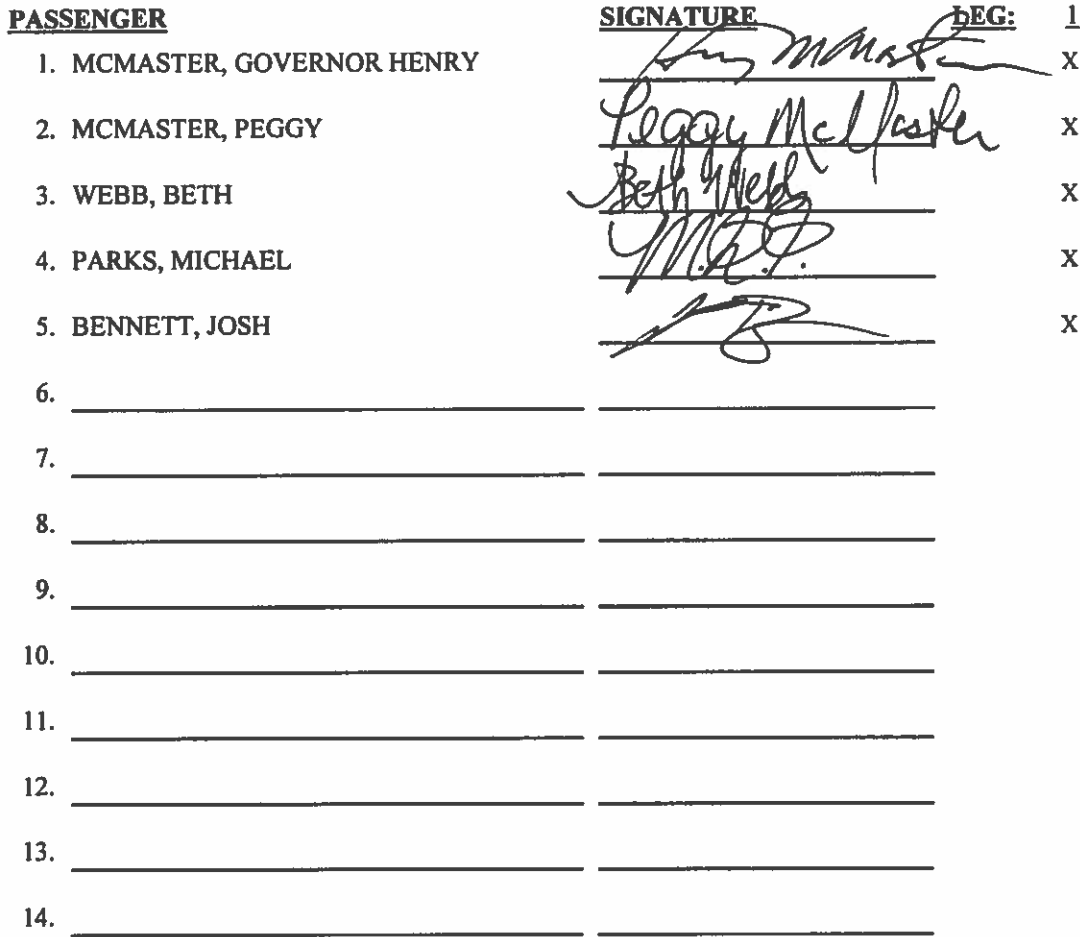 PASSENGER SIGNATURE LEG: 1
1. MCMASTER, GOVERNOR HENRY Henry McMaster X
2. MCMASTER, PEGGY Peggy McMaster X
3. WEBB, BETH Beth Webb X
4. PARKS, MICHAEL M.R.P. X
5. BENNETT, JOSH X
6.
7.
8.
9.
10.
11.
12.
13.
14.